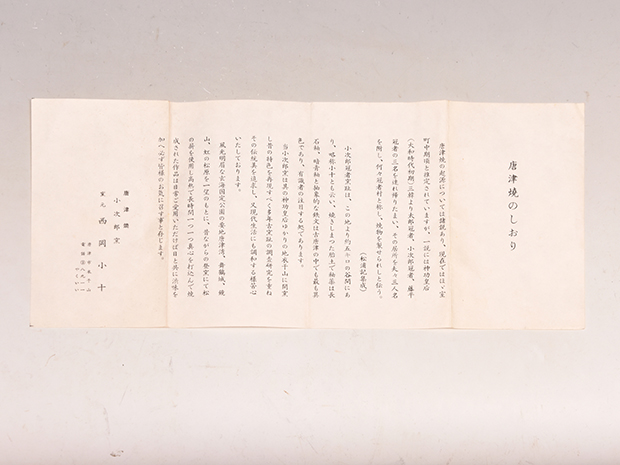 唐津焼のしおり
唐津焼の起源については諸説あり、現在ではほゞ室
町中期頃と推定されていますが、一説には神功皇后
(大和時代初期)三韓より太郎冠者、小次郎冠者、藤平
冠者の三名を連れ帰りたまい、その居所を夫々三人名
を附し、何々冠者村と称し、焼物を製せられしと伝う。
(松浦記集成)
小次郎冠者窯趾は、この地より約五キロの谷間にあ
り、略称小十とも云い、焼きしまった胎土で釉薬は長
石釉、暗青釉と抽象的な鉄文は古唐津の中でも最も異
色であり、有識者の注目する処であります。
当小次郎窯は其の神功皇后ゆかりの地衣干山に開窯
し昔の特色を再現すべく多年古窯趾の調査研究を重ね
その伝統美を追求し、又現代生活にも調和する様苦心
いたしております。
風光明眉な玄海国定公園の要地唐津湾、舞鶴城、鏡
山、虹の松原を一望のもとに、昔ながらの登窯にて松
の薪を使用し高熱で長時間一つ一つ真心を打込んで焼
成された作品は日常ご愛用いただけば日と共に渋味を
加へ必ず皆様のお気に召す事と存じます。
唐津焼
小次郎窯
窯元 西岡小十
唐津市
電話